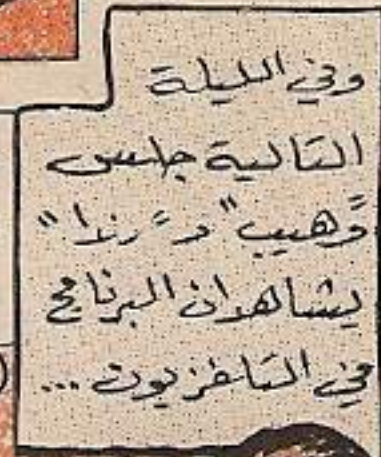 وفي الليلة
التالية جلس
"وهيب" و "رندا"
يشاهدان البرنامج
في التلفزيون ...